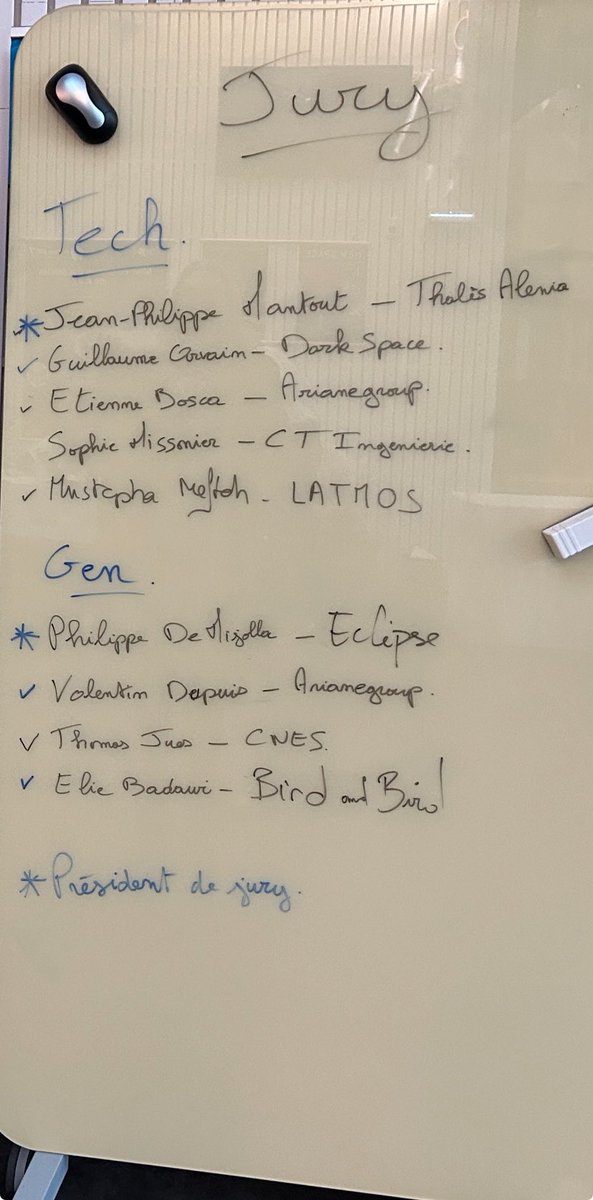 Jury
Tech.
* Jean-Philippe Mantout – Thalès Alenia
✓ Guillaume – Dark Space.
✓ Etienne Bosca – Arianegroup.
Sophie Missonier – CT Ingenierie.
✓ Mustapha Meftah - LATMOS
Gen.
* Philippe De Mizolla – Eclipse
✓ Valentin Dapuis – Arianegroup.
✓ Thomas – CNES.
✓ Elie Badawi – Bird and Bird
* Président de jury.